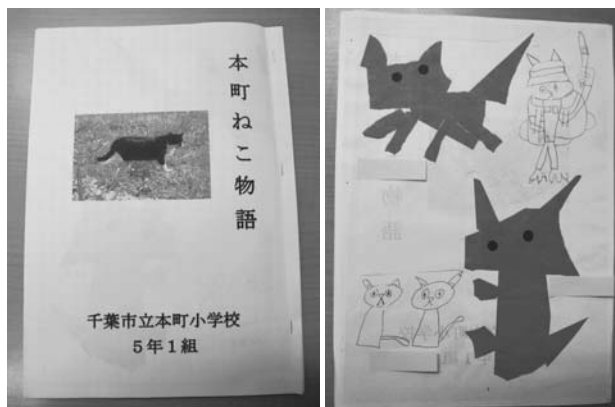 本町ねこ物語
千葉市立本町小学校
５年１組